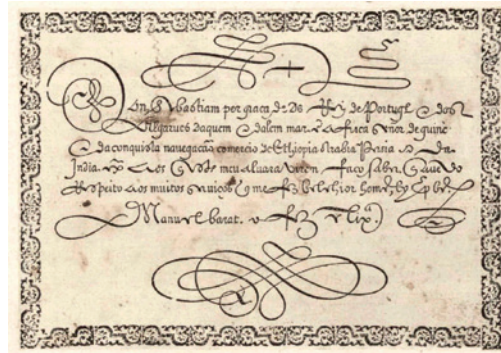 Don Sebastiam per graca de Ds Rey de Portugl E dos
Algarues daquem E dalem mar em Africa Senor de guine
E da conquista navegacão comercio de Ethiopia Arabia Persia E da
India. Aos meu aluara virem faço saber. Q avendo
Respeito aos muitos seruiços q me fez belchior
Manuel barat. o fez e lix.